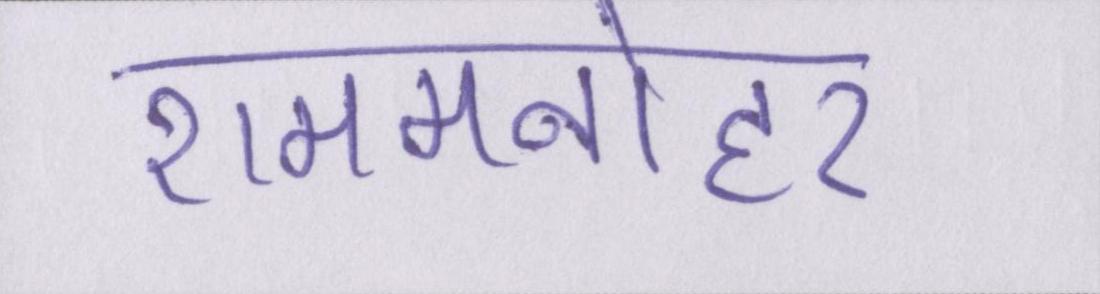 राममनोहर